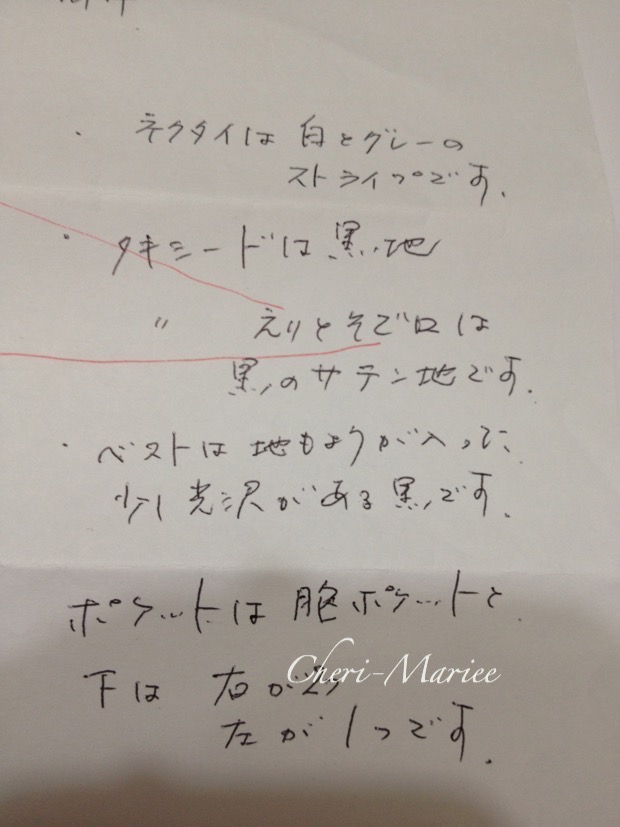 ・ネクタイは 白とグレーの
ストライプです.
・タキシードは黒,地
〃 えりとそで口は
黒のサテン地です.
・ベストは地もようが入って、
少し光沢がある黒です.
ポケットは胸ポケットと.
下は 右が2つ
左が1つです.
Cheri-Mariee